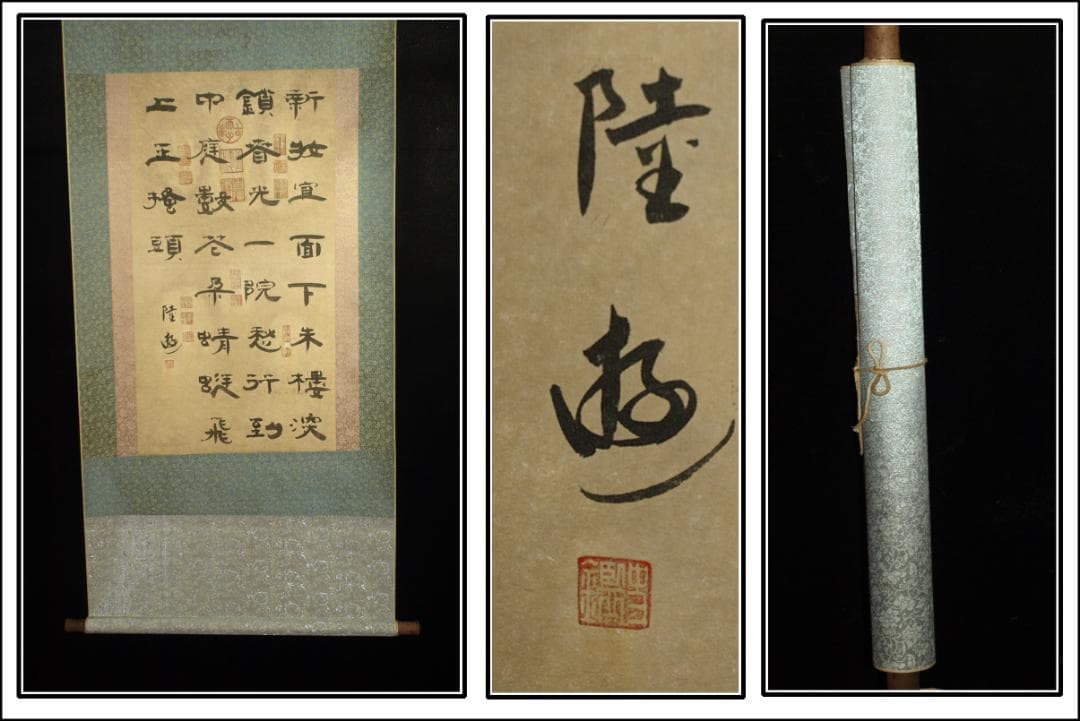 新妝宜面下朱樓深
鎖春光一院愁行到
中庭數花朵蜻蜓飛
上玉搔頭
陸游
陸游